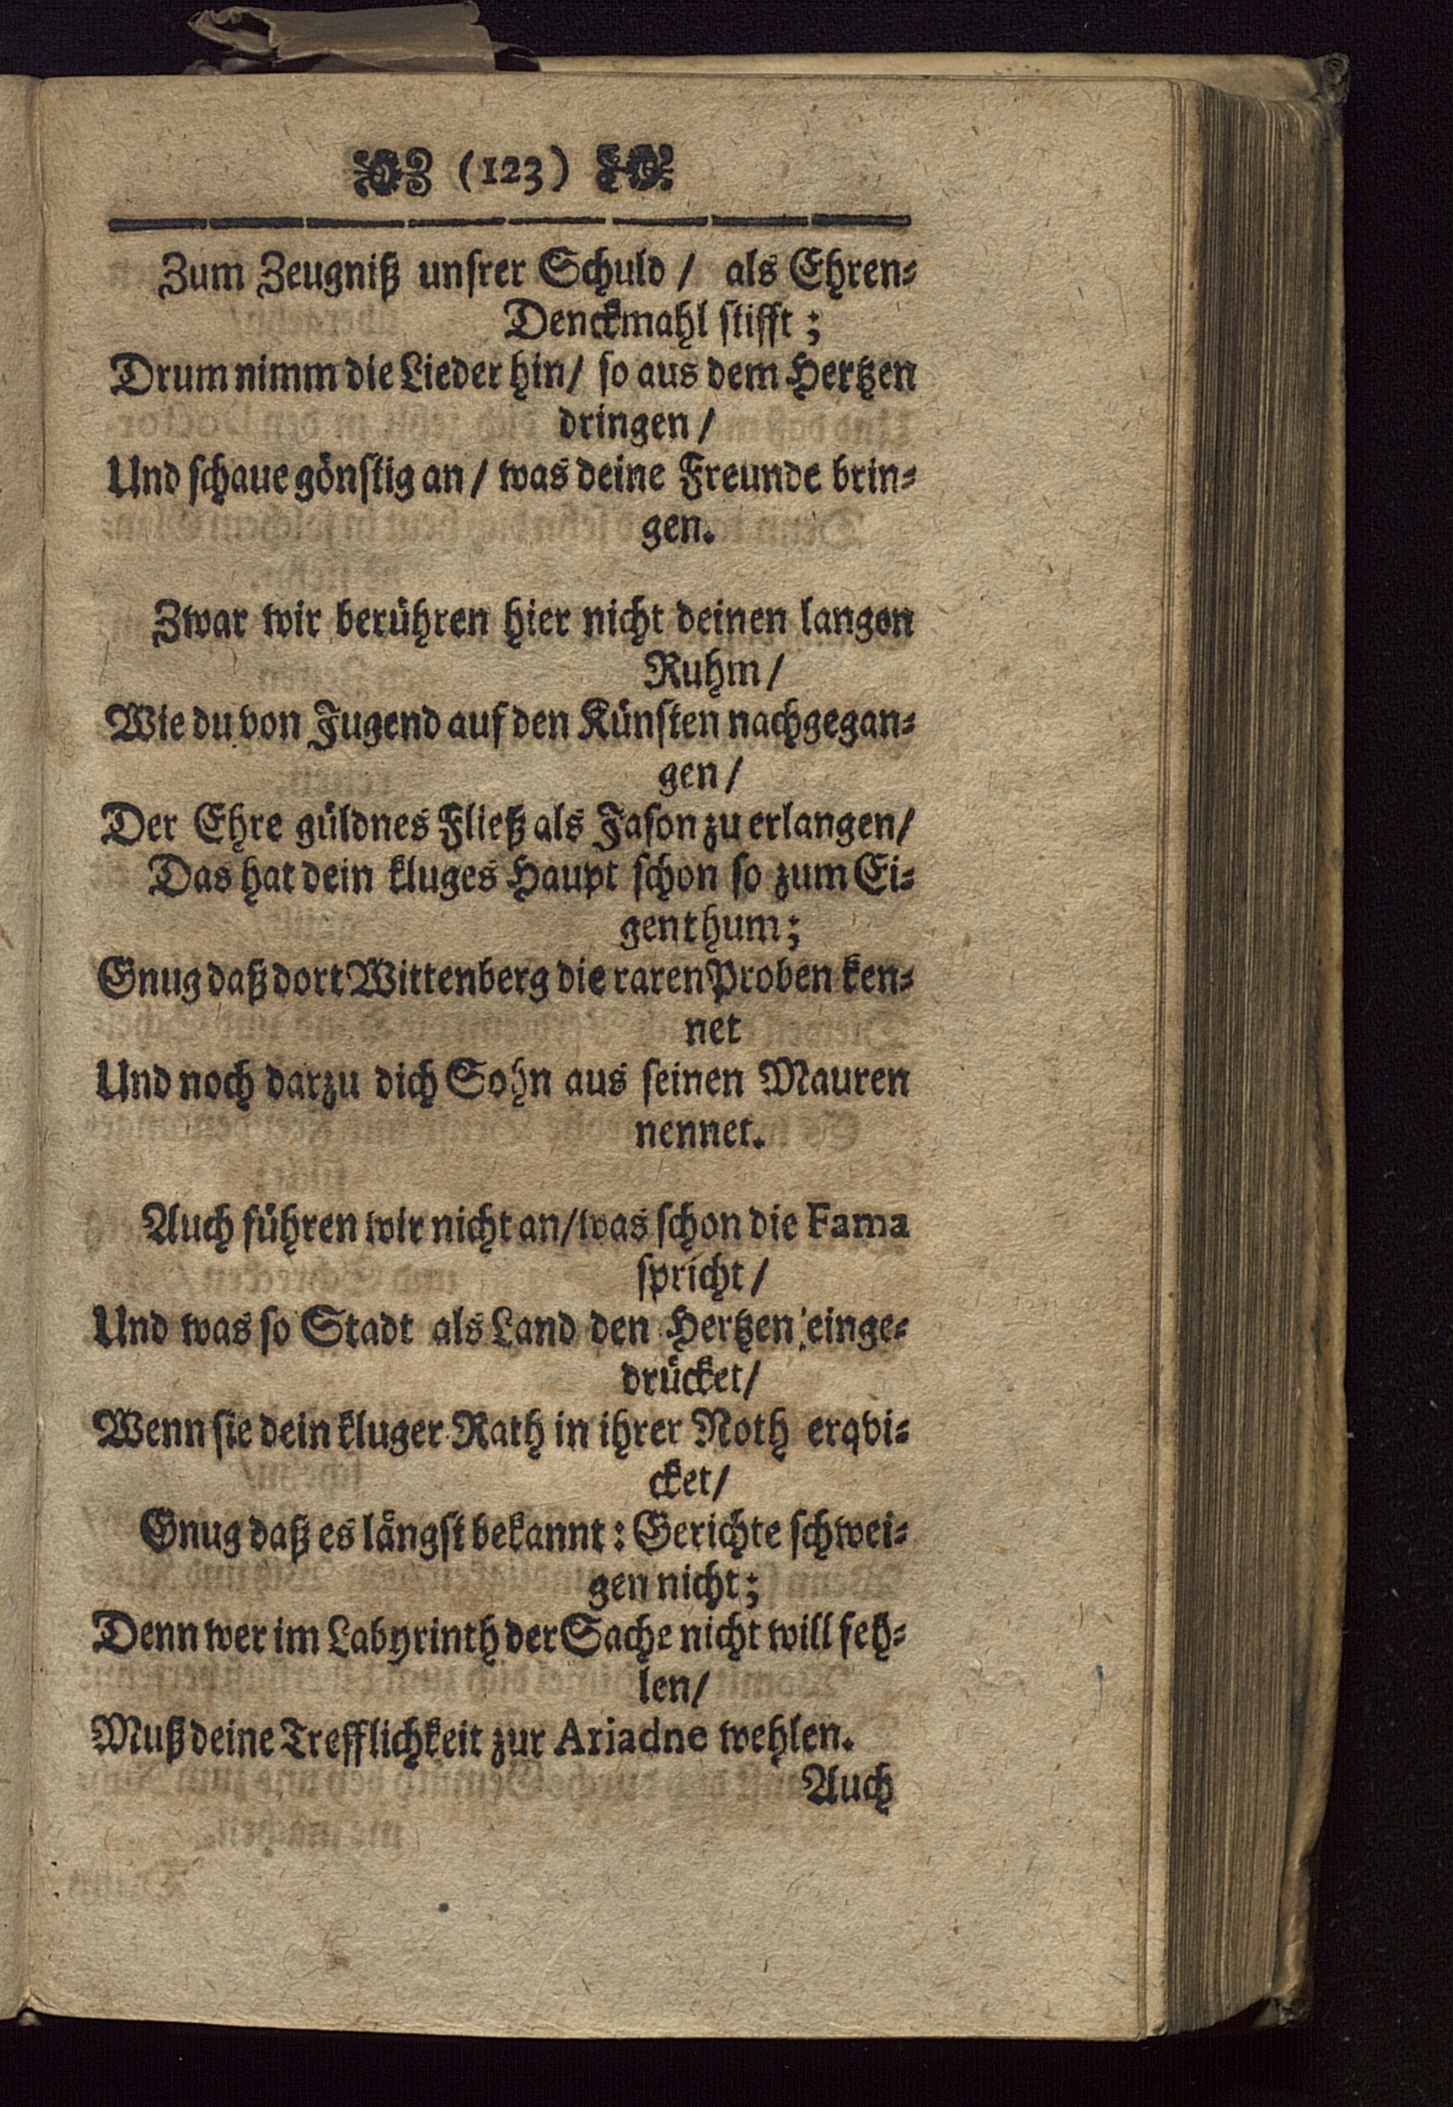 (123)
Zum Zeugniß unsrer Schuld / als Ehren-
Denckmahl stifft ;
Drum nimm die Lieder hin / so aus dem Hertzen
dringen /
Und schaue gönstig an / was deine Freunde brin-
gen.
Zwar wir berühren hier nicht deinen langen
Ruhm /
Wie du von Jugend auf den Künsten nachgegan-
gen /
Der Ehre güldnes Fließ als Jason zu erlangen /
Das hat dein kluges Haupt schon so zum Ei-
genthum ;
Gnug daß dort Wittenberg die raren Proben ken-
net
Und noch darzu dich Sohn aus seinen Mauren
nennet.
Auch führen wir nicht an / was schon die Fama
spricht /
Und was so Stadt als Land den Hertzen einge-
drücket /
Wenn sie dein kluger Rath in ihrer Noth erqvi-
cket /
Gnug daß es längst bekannt : Gerichte schwei-
gen nicht ;
Denn wer im Labyrinth der Sache nicht will feh-
len /
Muß deine Trefflichkeit zur Ariadne wehlen.
Auch